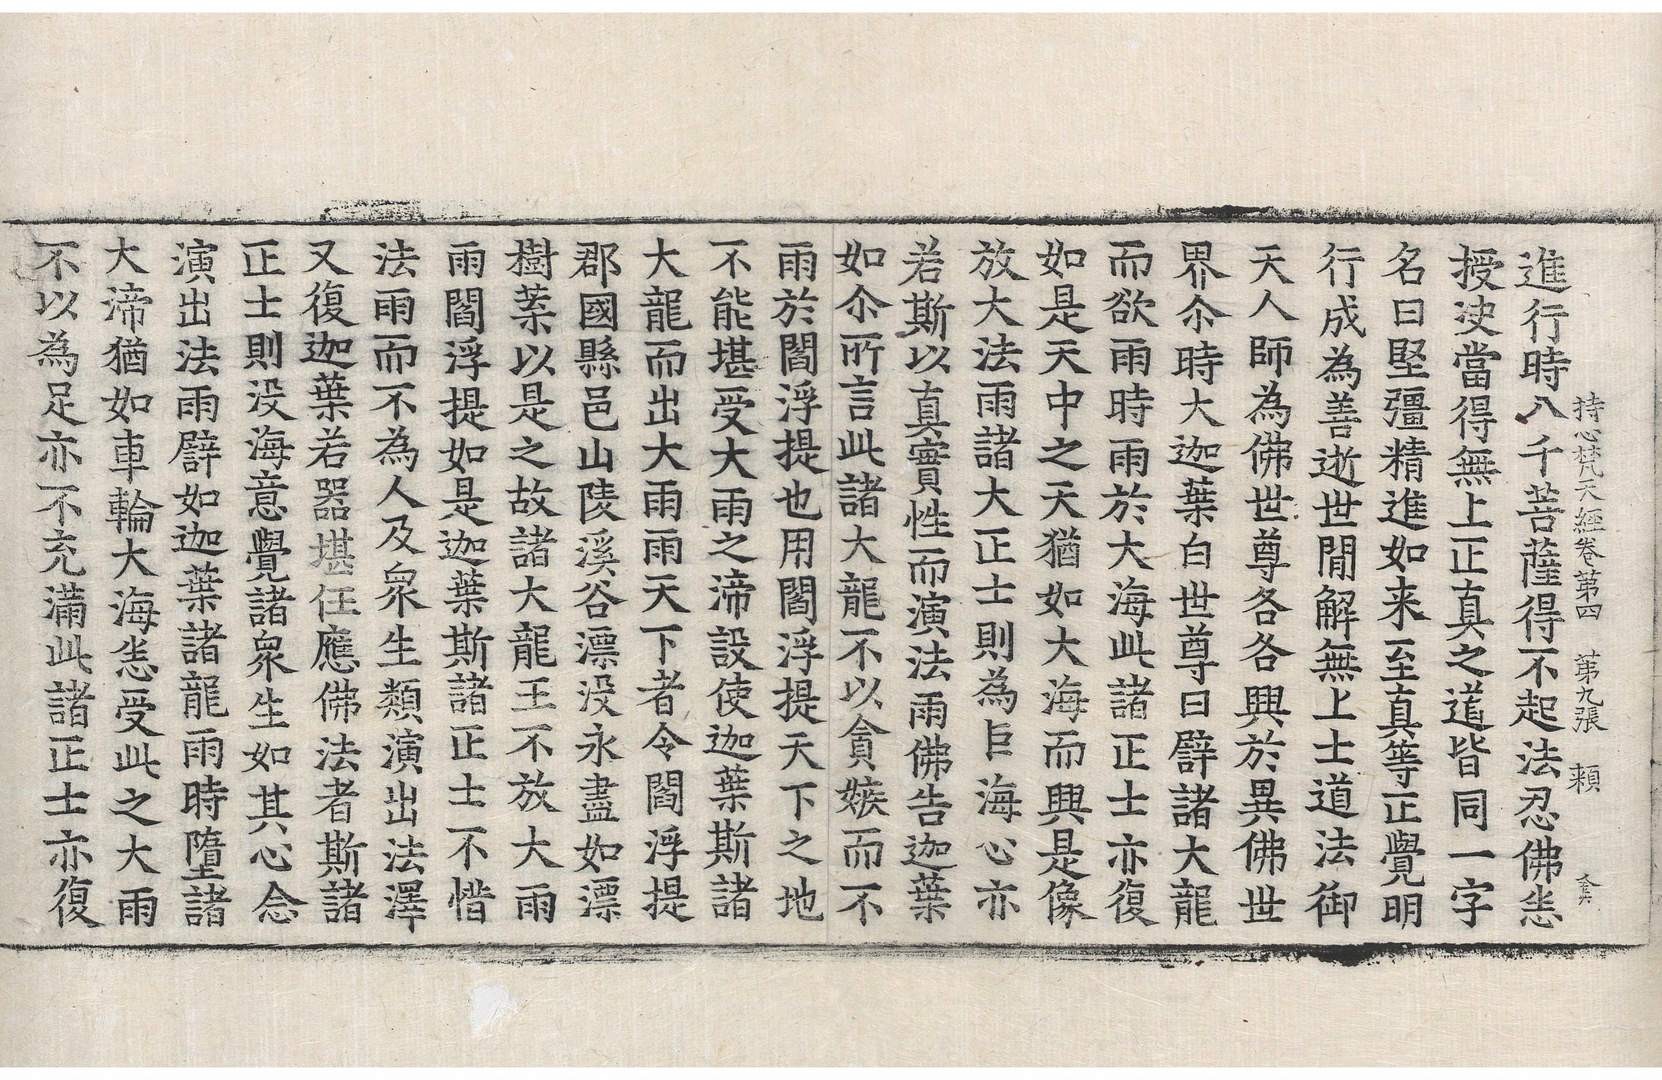 持心梵天經卷第四　第九張　賴
進行時八千菩薩得不起法忍佛悉
授決當得無上正真之道皆同一字
名曰堅彊精進如来至真等正覺明
行成為善逝世閒解無上士道法御
天人師為佛世尊各各興於異佛世
界尒時大迦葉白世尊曰譬諸大龍
而欲雨時雨於大海此諸正士亦復
如是天中之天猶如大海而興是像
放大法雨諸大正士則為巨海心亦
若斯以真實性而演法雨佛告迦葉
如尒所言此諸大龍不以貪嫉而不
雨於閻浮提也用閻浮提天下之地
不能堪受大雨之渧設使迦葉斯諸
大龍而出大雨雨天下者令閻浮提
郡國縣邑山陵溪谷漂没永盡如漂
樹葉以是之故諸大龍王不放大雨
雨閻浮提如是迦葉斯諸正士不惜
法雨而不為人及衆生類演出法澤
又復迦葉若器堪任應佛法者斯諸
正士則没海意覺諸衆生如其心念
演出法雨譬如迦葉諸龍雨時墮諸
大渧猶如車輪大海悉受此之大雨
不以為足亦不充滿此諸正士亦復